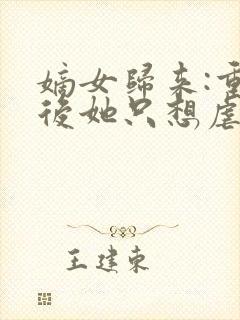 嫡女歸來:重
後她只想虐
王建東